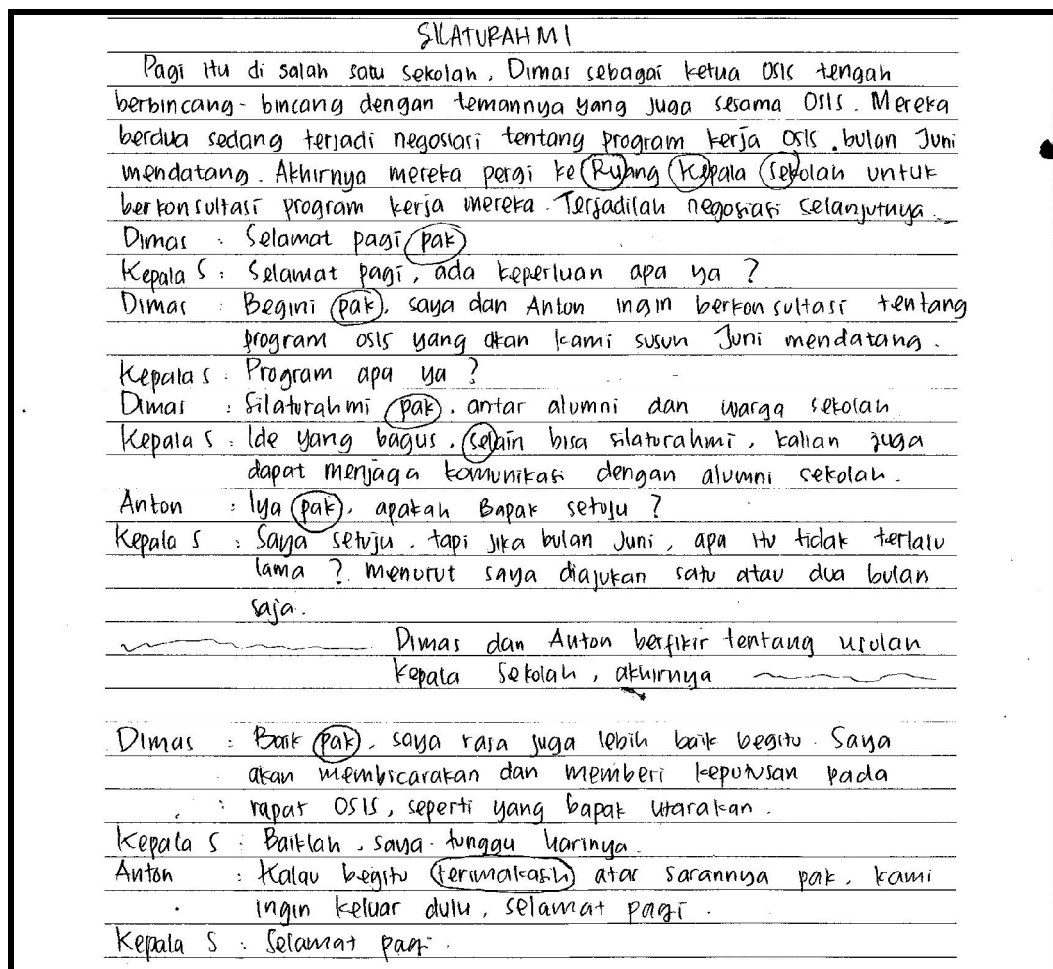 SILATURAHMI
Pagi itu di salah satu sekolah, Dimas sebagai ketua OSIS tengah
berbincang-bincang dengan temannya yang juga sesama OSIS. Mereka
berdua sedang terjadi negosiasi tentang program kerja OSIS. bulan Juni
mendatang. Akhirnya mereka pergi ke Ruang Kepala sekolah untuk
berkonsultasi program kerja mereka. Terjadilah negosiasi selanjutnya.
Dimas : Selamat pagi pak
Kepala S : Selamat pagi, ada keperluan apa ya ?
Dimas : Begini pak, saya dan Anton ingin berkonsultasi tentang
program osis yang akan kami susun Juni mendatang.
Kepala S : Program apa ya ?
Dimas : Silaturahmi pak. antar alumni dan warga sekolah
Kepala S : Ide yang bagus. selain bisa silaturahmi, kalian juga
dapat menjaga komunikasi dengan alumni sekolah.
Anton : Iya pak, apakah Bapak setuju ?
Kepala S : Saya setuju. tapi jika bulan Juni, apa itu tidak terlalu
lama ? menurut saya diajukan satu atau dua bulan
saja.
Dimas dan Anton berfikir tentang usulan
Kepala Sekolah, akhirnya
Dimas : Baik pak, saya rasa juga lebih baik begitu. Saya
akan membicarakan dan memberi keputusan pada
: rapat OSIS, seperti yang bapak utarakan.
Kepala S : Baiklah, saya tunggu harinya.
Anton : Kalau begitu terimakasih atas sarannya pak, kami
ingin keluar dulu, selamat pagi.
Kepala S : Selamat pagi.